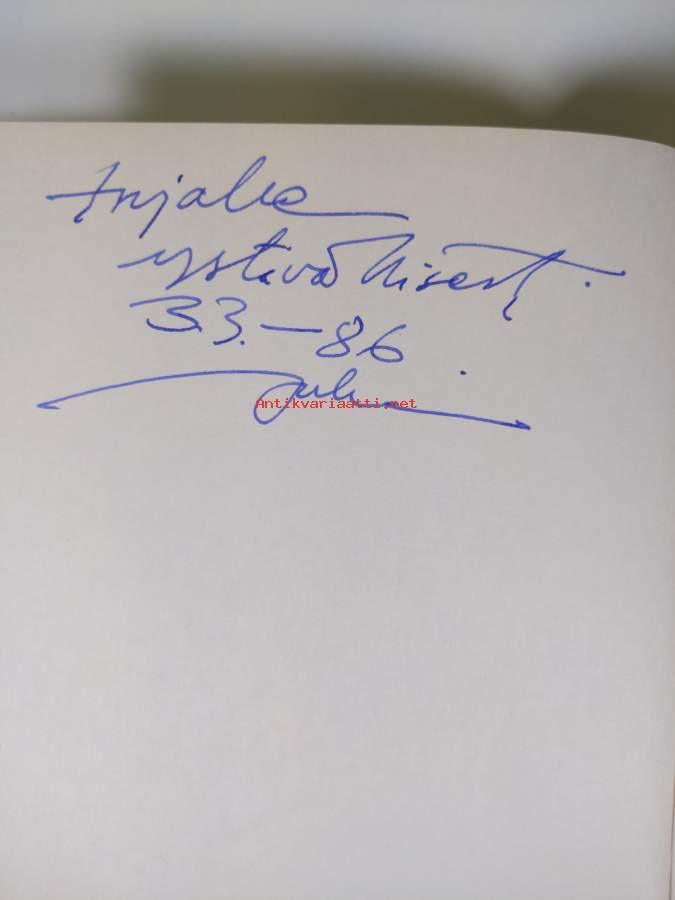 Anjalle
ystävällisesti
3.3.-86
Antikvariaatti.net